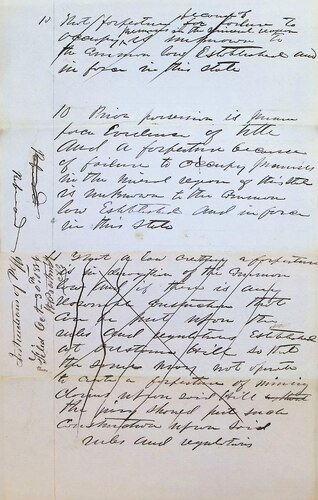 10 That forfeiture because of failure to
occupy premises in the mineral region is unknown to
the Common law Established and
in force in this State
10 Prior possession is prima
facia Evidence of title
And a forfeiture because
of failure to occupy premises
in the mineral region of this State
is unknown to the Common
law Established And in force
in this State
That a law creating a forfeiture
is in derogation of the Common
law And if there is any
reasonable construction that
can be put upon the
rules And regulations Established
at Scotoma hill so that
the same may not operate
to work a forfeiture of mining
claims upon said hill
the jury should put such
Construction upon said
rules and regulations
Instructions of Plff
Refused
Filed Oct 30th